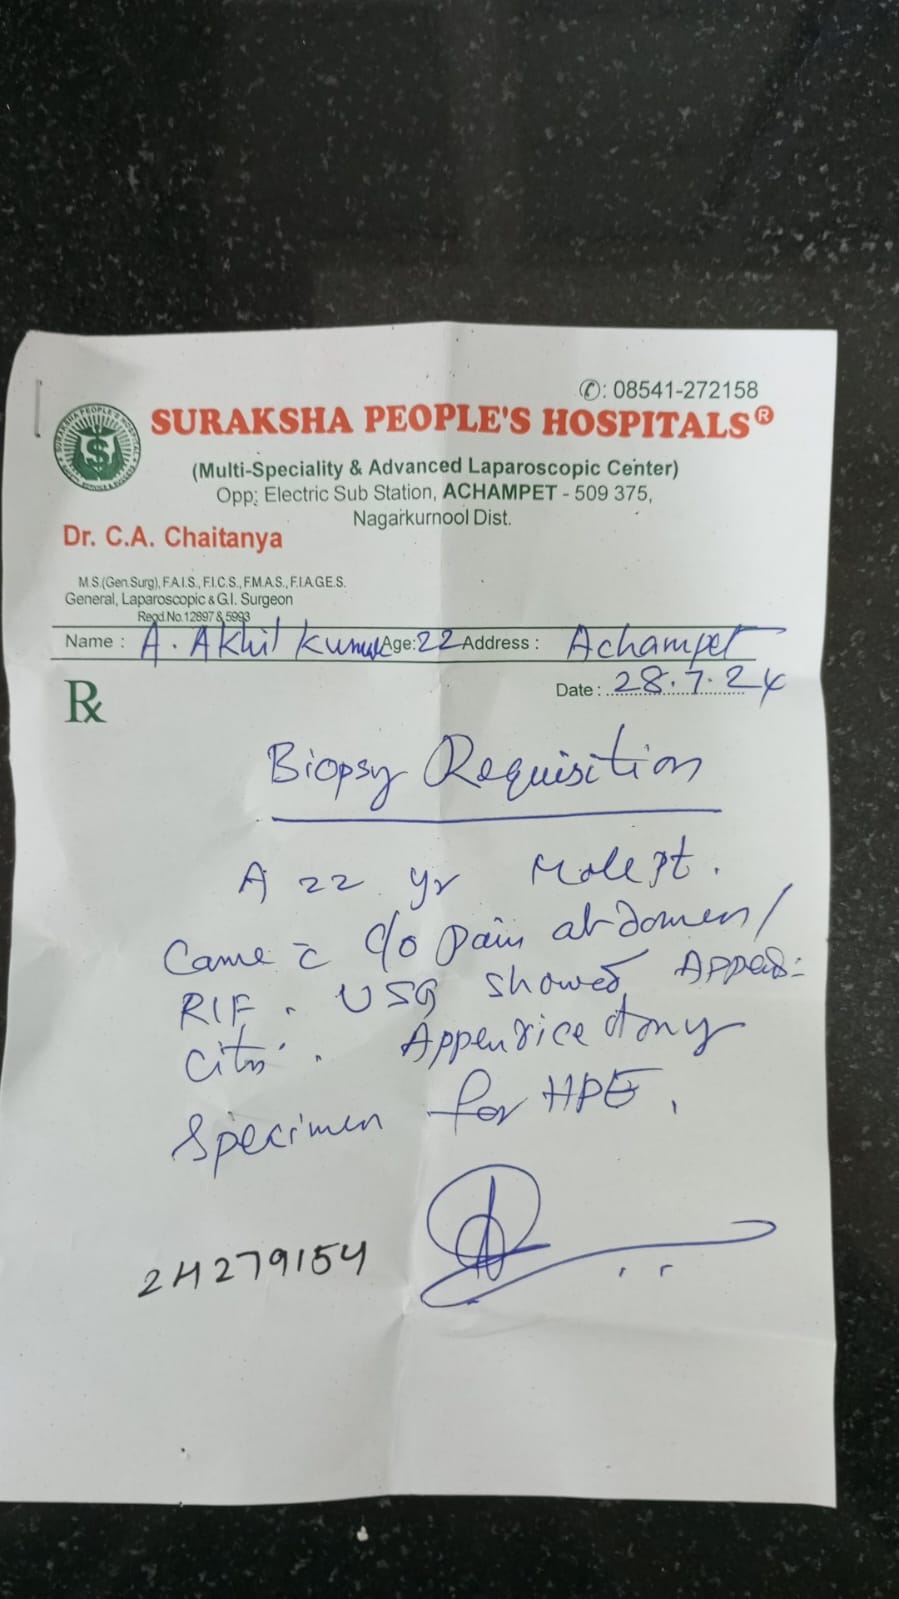 ✆: 08541-272158
SURAKSHA PEOPLE'S HOSPITALS®
(Multi-Speciality & Advanced Laparoscopic Center)
Opp: Electric Sub Station, ACHAMPET - 509 375,
Nagarkurnool Dist.
Dr. C.A. Chaitanya
M.S.(Gen.Surg), F.A.I.S., F.I.C.S., F.M.A.S., F.I.A.G.E.S.
General, Laparoscopic & G.I. Surgeon
Regd.No.12897 & 5993
Name : A. Akhil Kumar Age: 22 Address : Achampet
Rx Date : 28.7.24
Biopsy Requisition
A 22 yr Male pt.
Came c̄ c/o pain abdomen /
RIF. USG showed Appen-
citis. Appendicectomy
specimen for HPE.
2H279154